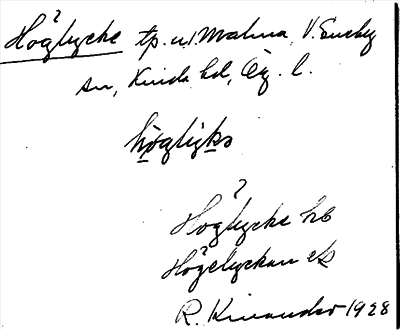 Höglycke tp. u/ Malma, V. Eneby
sn, Kinda hd, Ög. l.
höglyks
Höglycke hb
Högelyckan ek
R. Kinander 1928